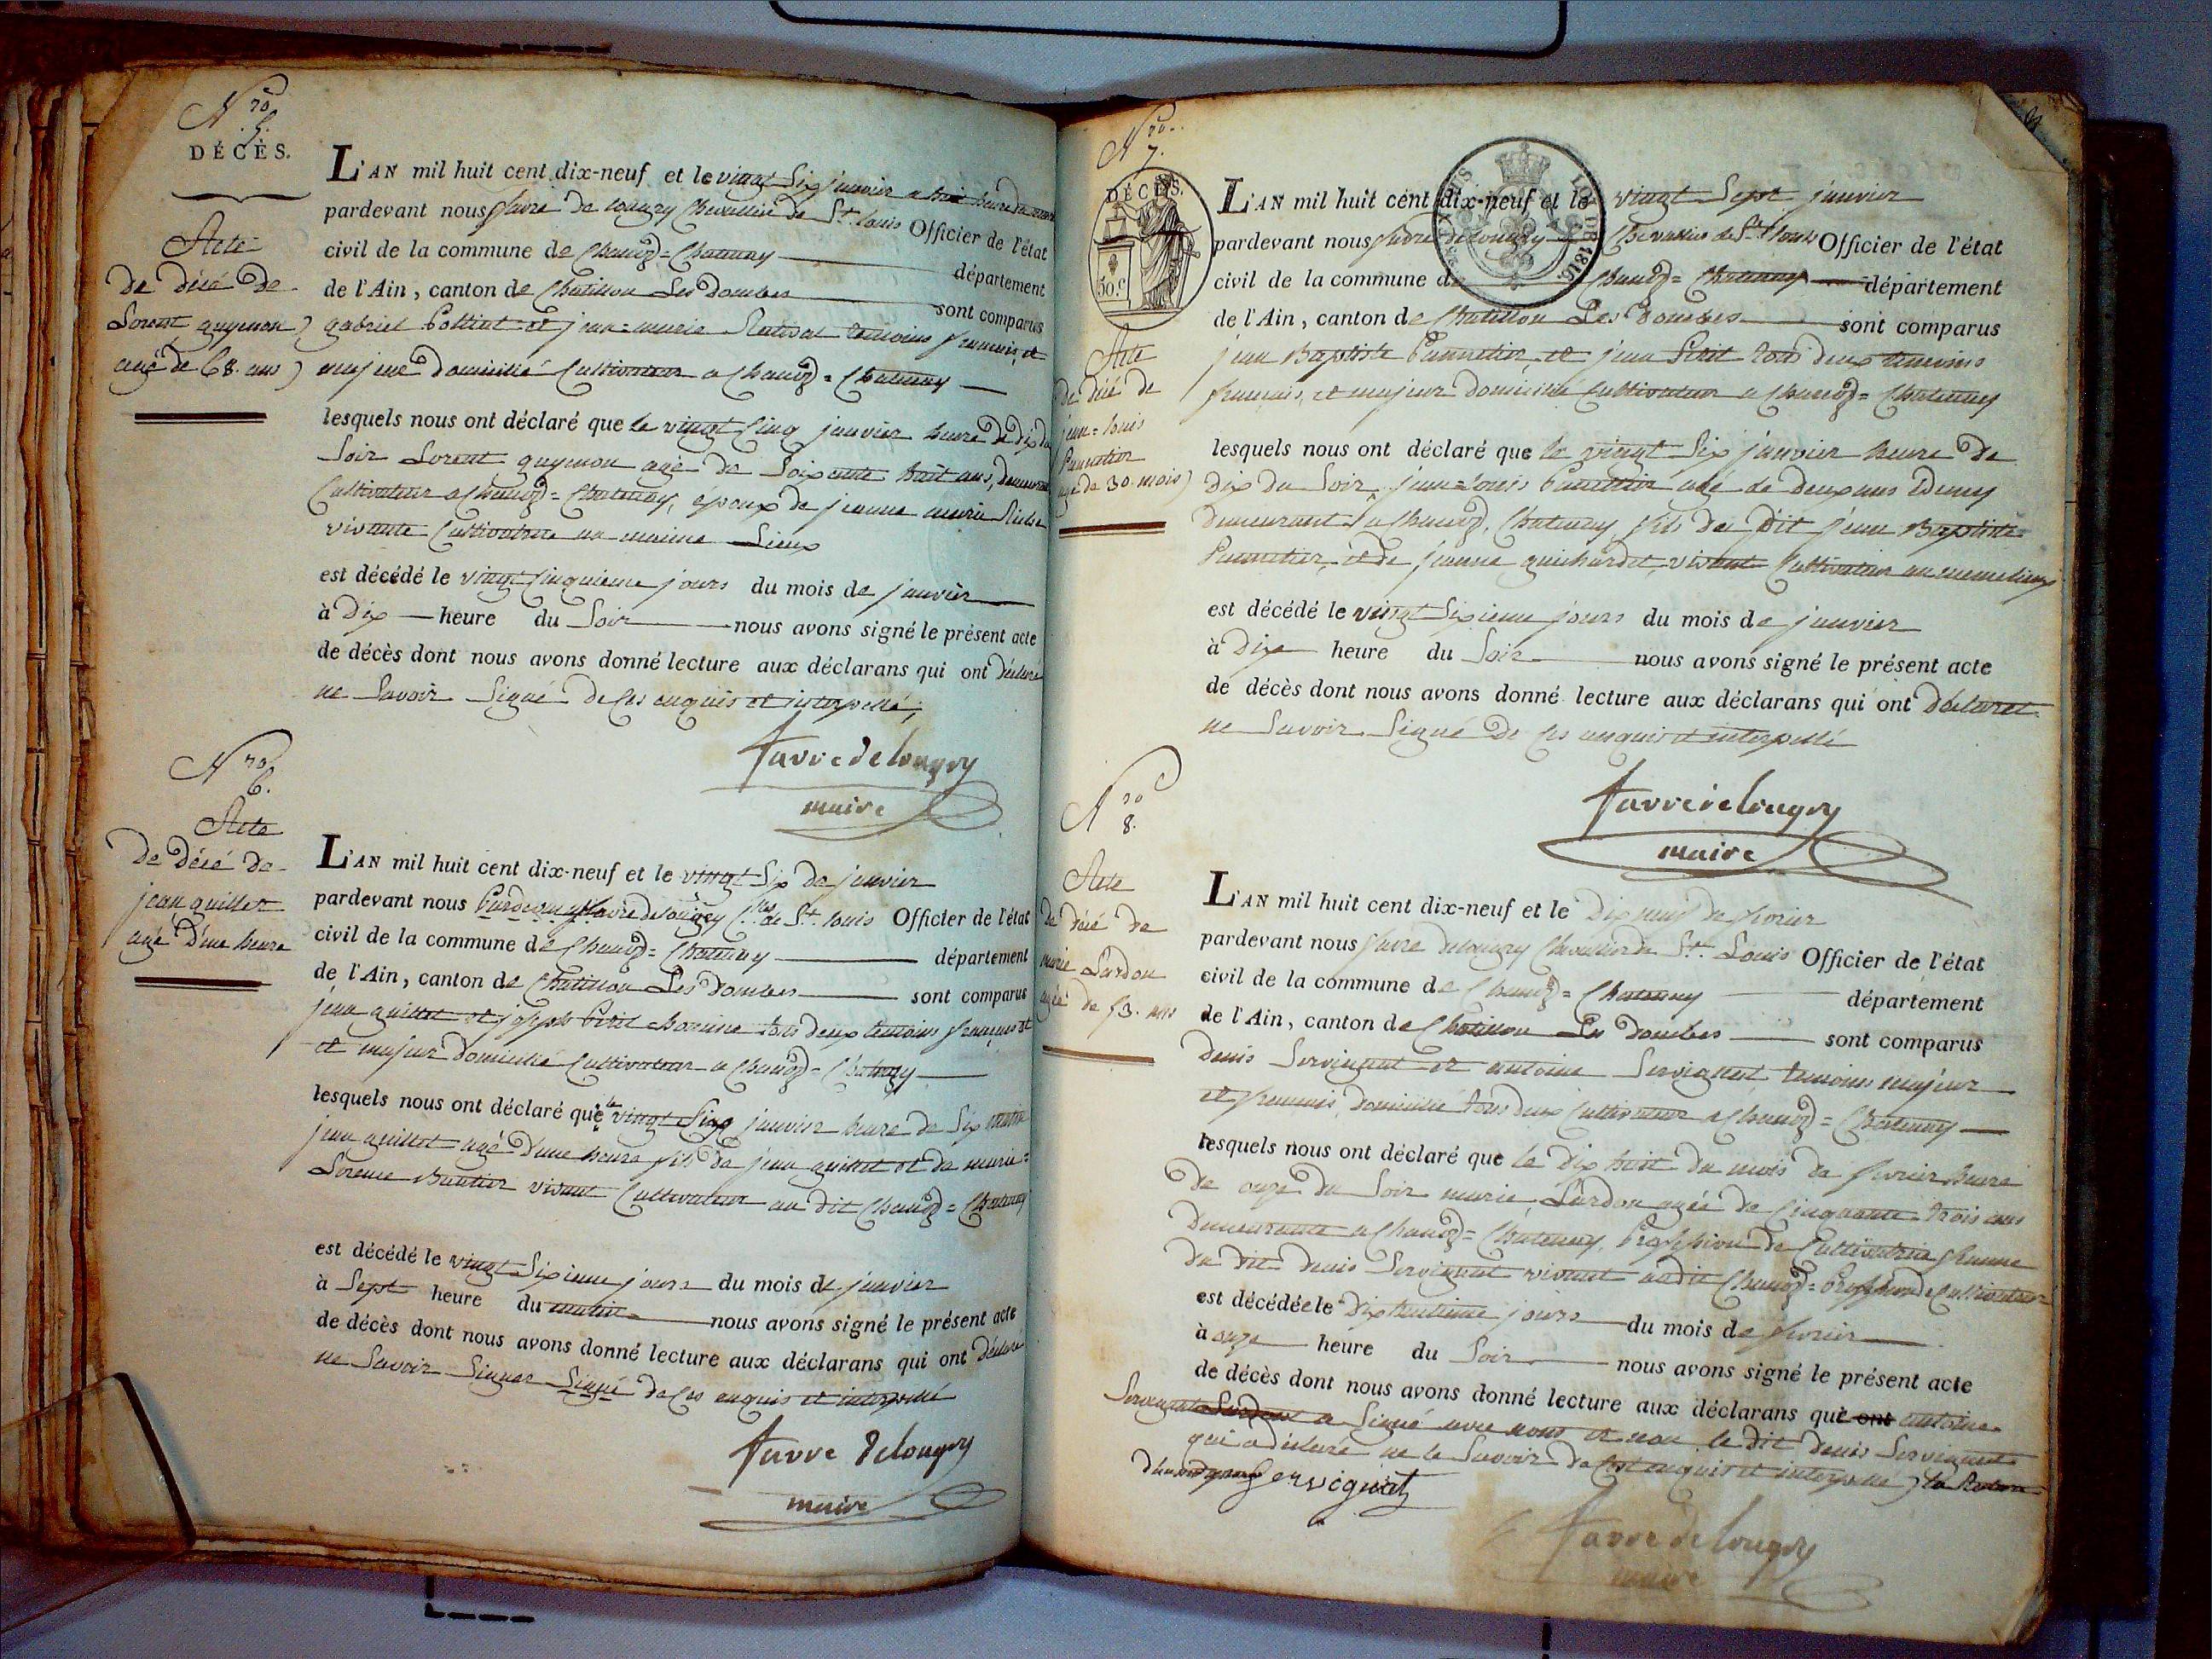 Nro 5.
DÉCÈS.
Acte
de décé de
Lorent guyenon
agé de 68. ans
L'AN mil huit cent dix-neuf et le vingt Six janvier a heure du
pardevant nous favre de longry Chevallier de St. Louis Officier de l'état
civil de la commune de Chanoz=Chatenay département
de l'Ain, canton de Chatillon Les Dombes sont comparus
gabriel et jean=marie temoins francais, et
majeure domicilié Cultivateur a Chanoz=Chatenay
lesquels nous ont déclaré que le vingt Cinq janvier heure de dix du
Soir Lorent guyenon agé de Soixante huit ans, demeurant
Cultivateur a Chanoz=Chatenay, époux de jeanne marie
vivante Cultivatrice au maime Lieux
est décédé le vingt Cinquieme jours du mois de janvier
à Dix heure du Soir nous avons signé le présent acte
de décès dont nous avons donné lecture aux déclarans qui ont déclaré
ne Savoir Signé de Ces enquis et interpellé,
favre de longry
maire
Nro 6.
Acte
de décé de
jean guillet
agé D'une heure
L'AN mil huit cent dix-neuf et le vingt Six de janvier
pardevant nous favre de longry Cher de St. Louis Officier de l'état
civil de la commune de Chanoz=Chatenay département
de l'Ain, canton de Chatillon Les Dombes sont comparus
jean guillet et joseph tous deux temoins francais et
et majeur domicilié Cultivateur a Chanoz=Chatenay
lesquels nous ont déclaré que le vingt Cinq janvier heure de Six matin
jean guillet agé D'une heure fils de jean guillet et de marie=
Lorence vivant Cultivateur au dit Chanoz=Chatenay
est décédé le vingt Sixieme jours du mois de janvier
à Sept heure du matin nous avons signé le présent acte
de décès dont nous avons donné lecture aux déclarans qui ont déclaré
ne Savoir Signer Signé de Ces enquis et interpellé
favre de longry
maire
Nro 7.
DÉCÈS.
50.c
Acte
de décé de
jean=louis
Pannetier
agé de 30. mois
L'AN mil huit cent dix-neuf et le vingt Sept janvier
pardevant nous favre de longry Chevallier de St. Louis Officier de l'état
civil de la commune de Chanoz=Chatenay département
de l'Ain, canton de Chatillon Les Dombes sont comparus
jean Baptiste Pannetier, et jean Petit tous deux temoins
francais, et majeur domicilié Cultivateur a Chanoz=Chatenay
lesquels nous ont déclaré que le vingt Six janvier heure de
dix du Soir, jean=Louis Pannetier agé de deux ans Demy
demeurant a Chanoz. Chatenay fils de dit jean Baptiste
Pannetier, et de jeanne guichardet, vivant Cultivateur au meme lieux
est décédé le vingt Sixieme jours du mois de janvier
à Dix heure du Soir nous avons signé le présent acte
de décès dont nous avons donné lecture aux déclarans qui ont déclaret
ne Savoir Signé de Ces enquis et interpellé
favre de longry
maire
Nro 8.
Acte
de décé de
marie Lardon
agée de 53. ans
L'AN mil huit cent dix-neuf et le Dix neuf de fevrier
pardevant nous favre delongry Chevallier de St. Louis Officier de l'état
civil de la commune de Chanoz=Chatenay département
de l'Ain, canton de Chatillon Les Dombes sont comparus
denis Servignat et antoine Servignat temoins majeur
et francais, domicilié tous deux Cultivateur a Chanoz=Chatenay
lesquels nous ont déclaré que le Dix huit du mois de fevrier heure
de onze du Soir marie Lardon agée de Cinquante trois ans
Demeurante a Chanoz=Chatenay, Profession de Cultivatrice femme
du dit denis Servignat vivant audit Chanoz= Profession de Cultivateur
est décédée le Dix huitieme jours du mois de fevrier
à onze heure du Soir nous avons signé le présent acte
de décès dont nous avons donné lecture aux déclarans qui ont antoine
Servignat a Signé avec nous et non le dit denis Servignat
qui a déclaré ne le Savoir de Ces enquis et interpellé
Servignat
favre de longry
maire